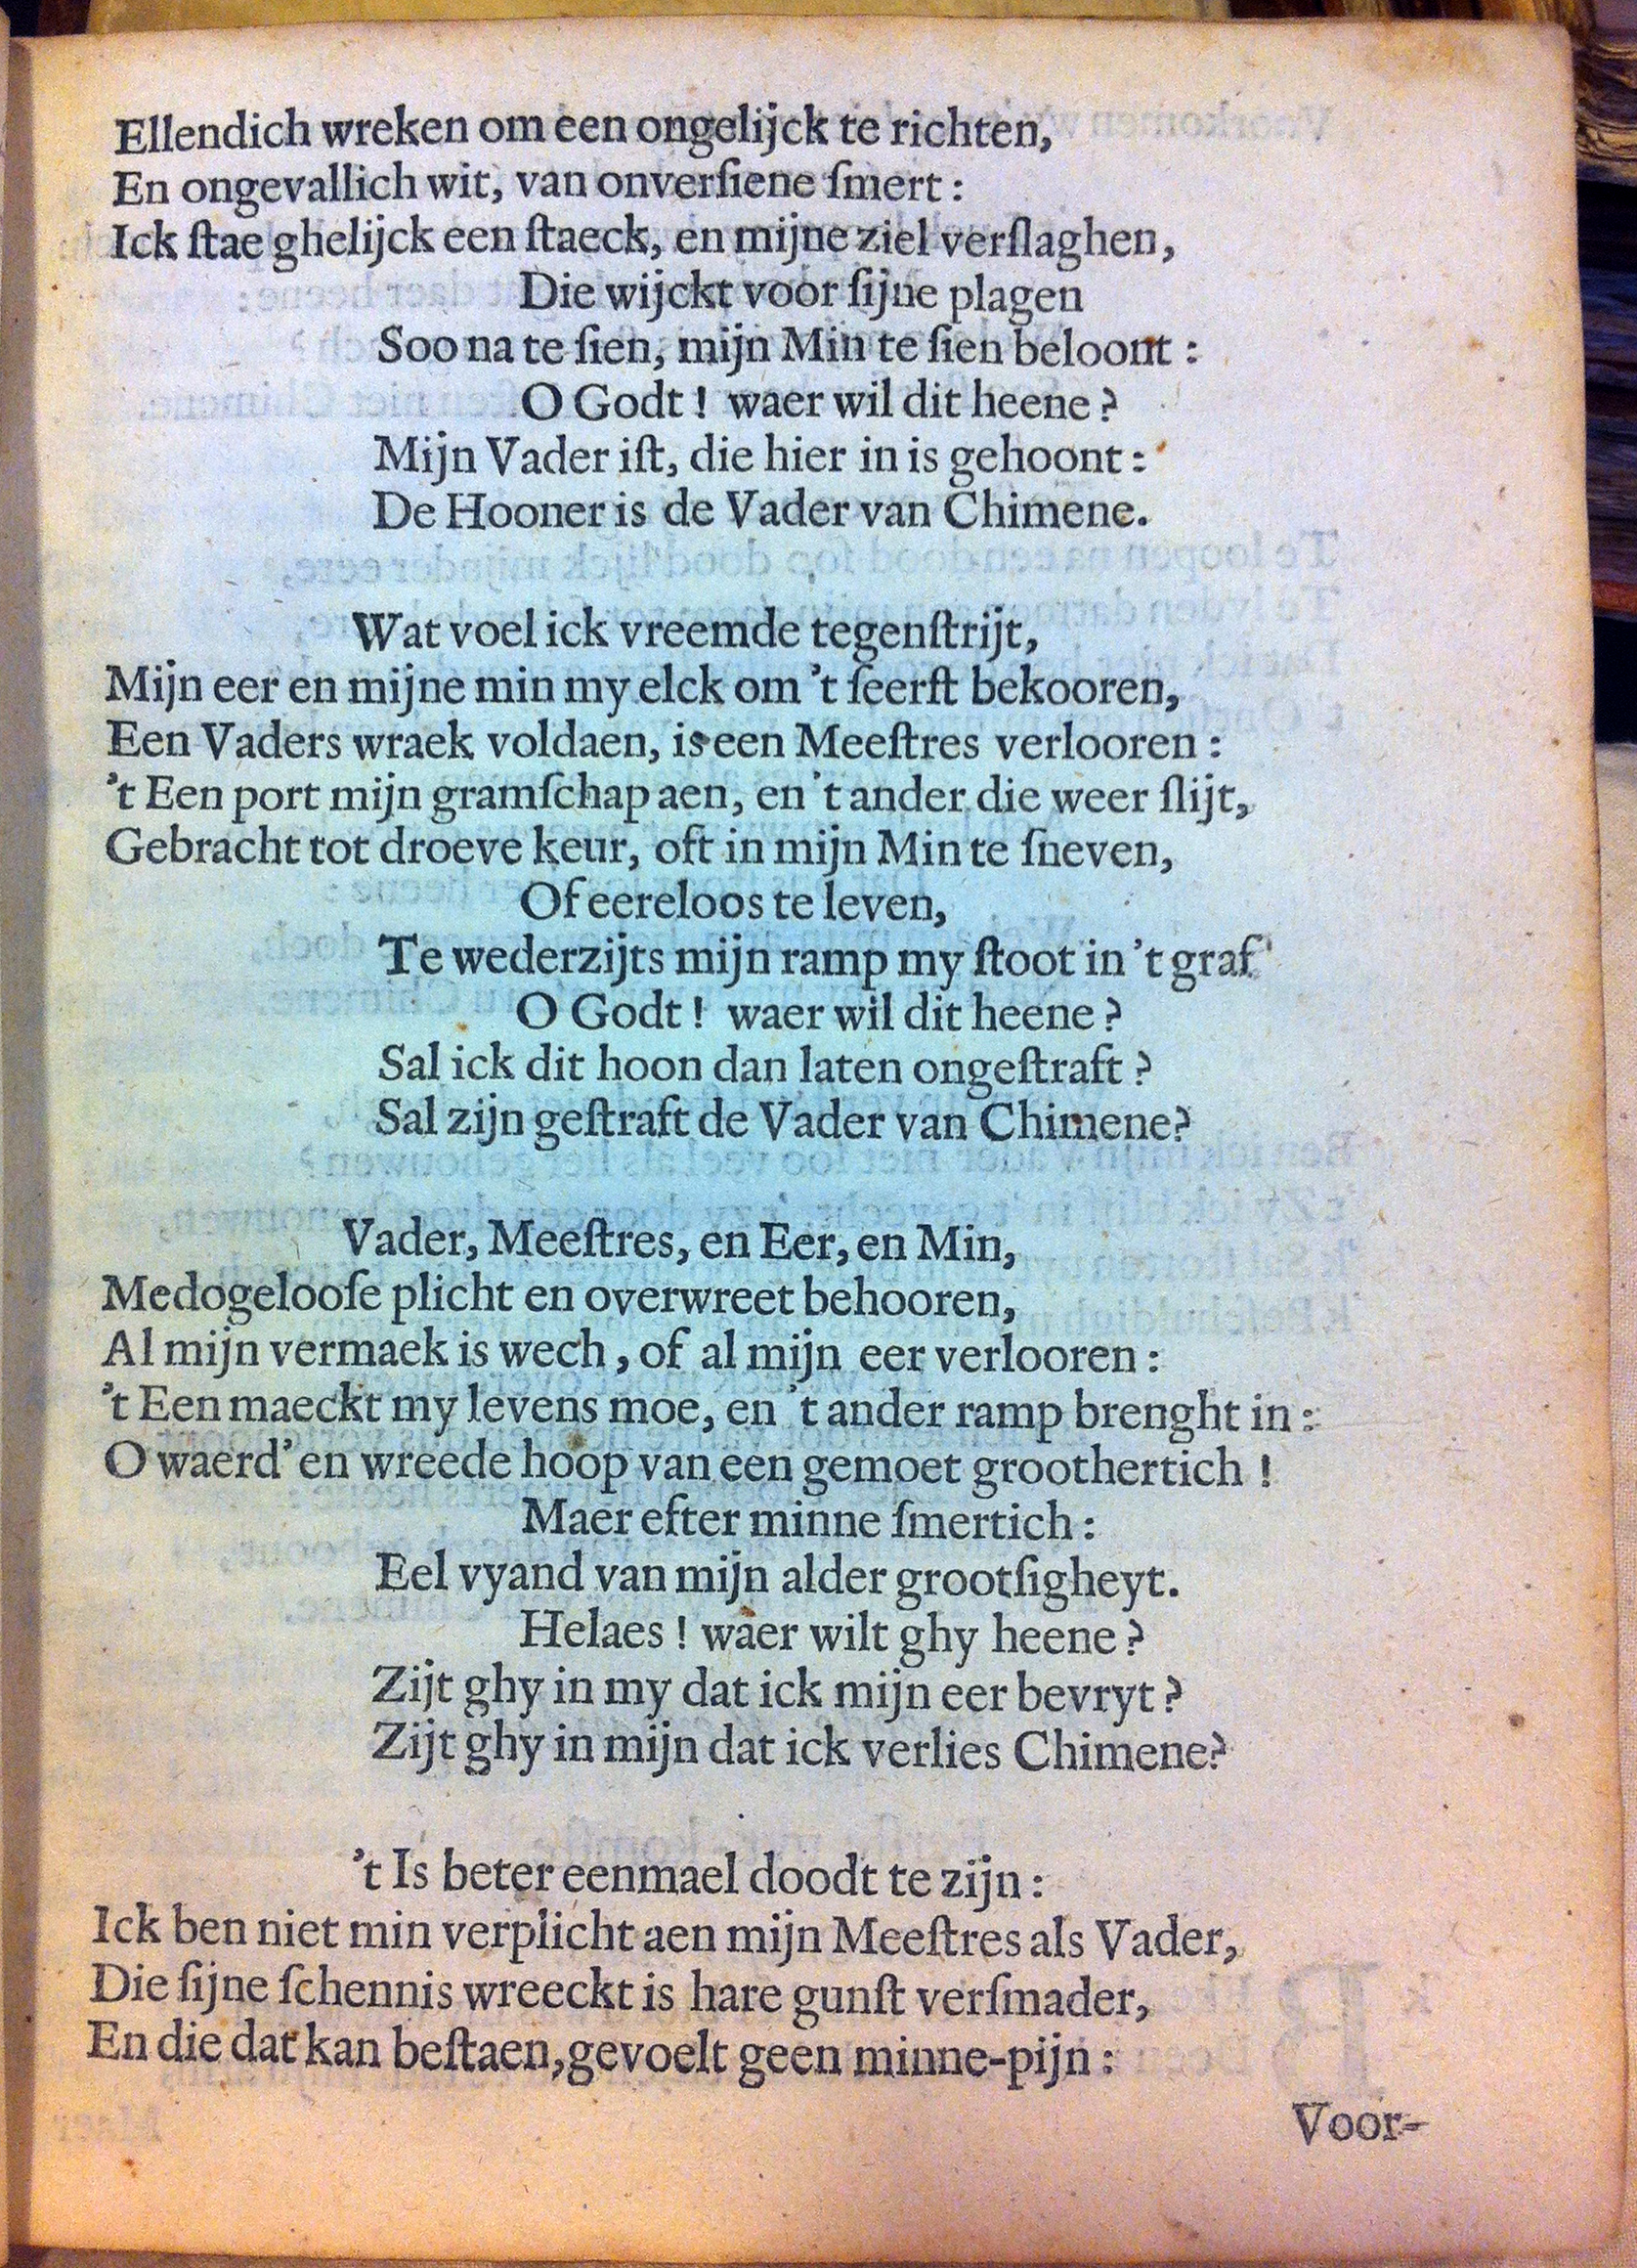 Ellendich wreken om een ongelijck te richten,
En ongevallich wit, van onverſiene ſmert:
Ick ſtae ghelijck een ſtaeck, en mijne ziel verſlaghen,
Die wijckt voor ſijne plagen
Soo na te ſien, mijn Min te ſien beloont:
O Godt! waer wil dit heene?
Mijn Vader iſt, die hier in is gehoont:
De Hooner is de Vader van Chimene.
Wat voel ick vreemde tegenſtrijt,
Mijn eer en mijne min my elck om 't ſeerſt bekooren,
Een Vaders wraek voldaen, is een Meeſtres verlooren:
't Een port mijn gramſchap aen, en 't ander die weer ſlijt,
Gebracht tot droeve keur, oft in mijn Min te ſneven,
Of eereloos te leven,
Te wederzijts mijn ramp my ſtoot in 't graf
O Godt! waer wil dit heene?
Sal ick dit hoon dan laten ongeſtraft?
Sal zijn geſtraft de Vader van Chimene?
Vader, Meeſtres, en Eer, en Min,
Medogelooſe plicht en overwreet behooren,
Al mijn vermaek is wech, of al mijn eer verlooren:
't Een maeckt my levens moe, en 't ander ramp brenght in:
O waerd' en wreede hoop van een gemoet groothertich!
Maer efter minne ſmertich:
Eel vyand van mijn alder grootſigheyt.
Helaes! waer wilt ghy heene?
Zijt ghy in my dat ick mijn eer bevryt?
Zijt ghy in mijn dat ick verlies Chimene?
't Is beter eenmael doodt te zijn:
Ick ben niet min verplicht aen mijn Meeſtres als Vader,
Die ſijne ſchennis wreeckt is hare gunſt verſmader,
En die dat kan beſtaen, gevoelt geen minne-pijn:
Voor-